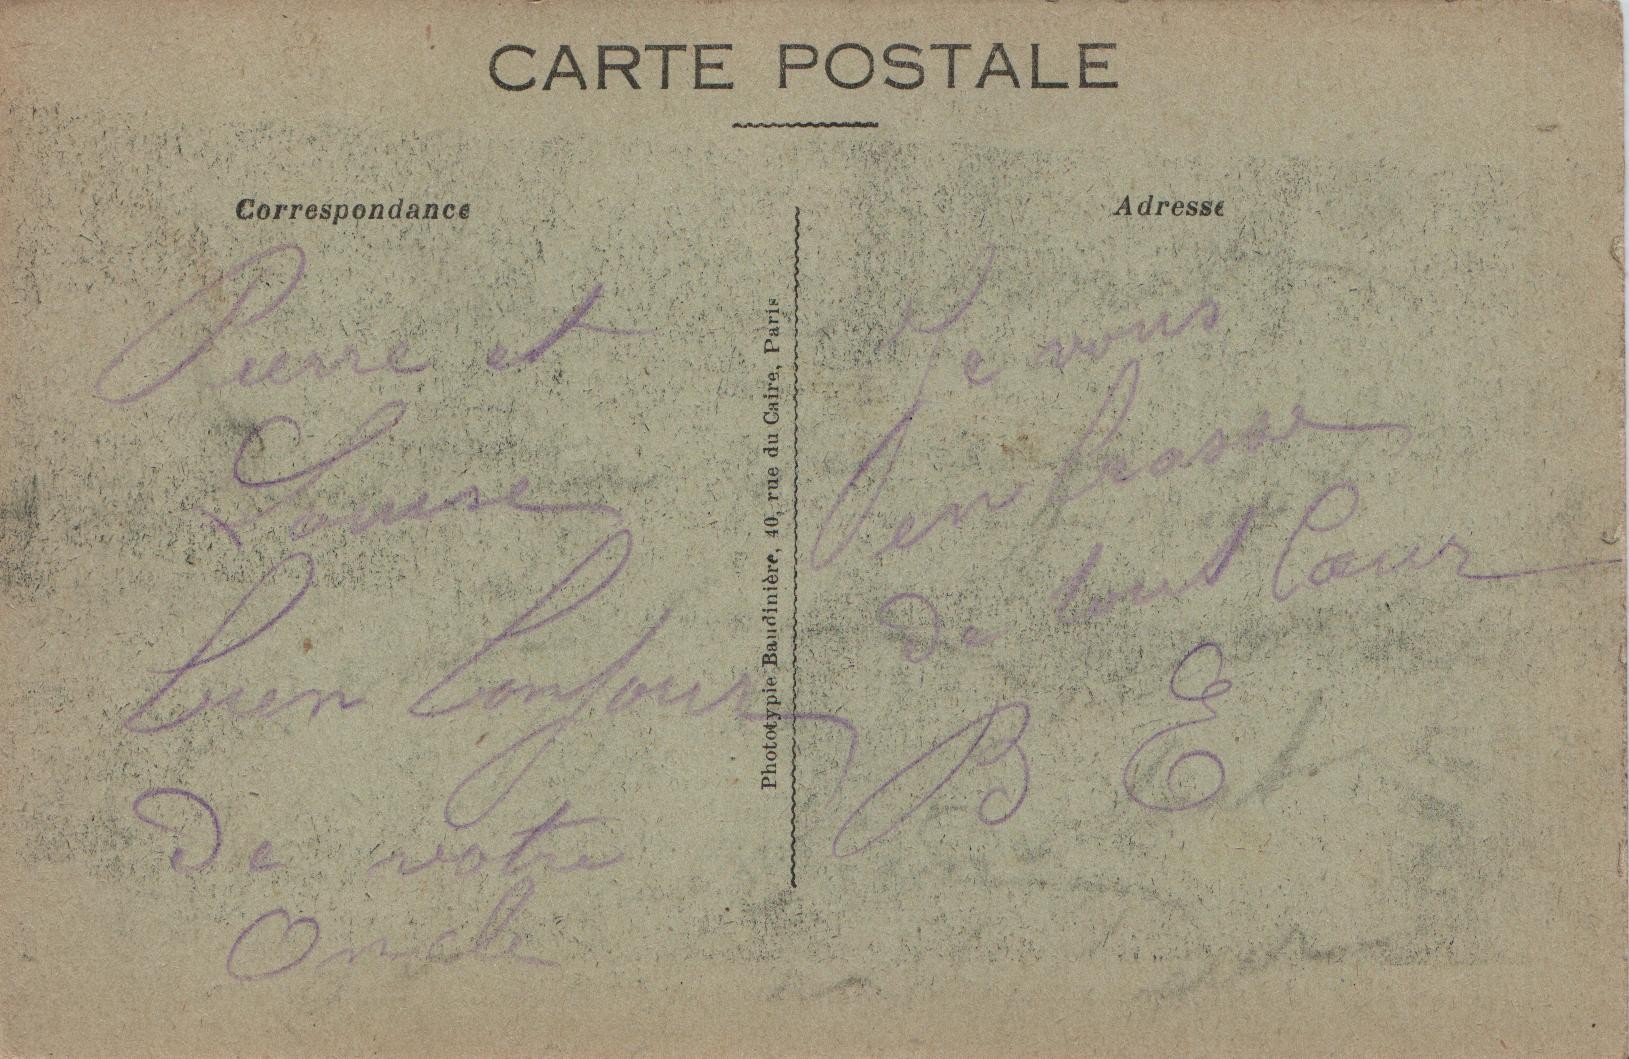 CARTE POSTALE
Correspondance
Pierre et
Louise
bien bonjour
De votre
Oncle
Phototypie Baudinière, 40, rue du Caire, Paris
Adresse
Je vous
en brasse
de tout Cœur
B E